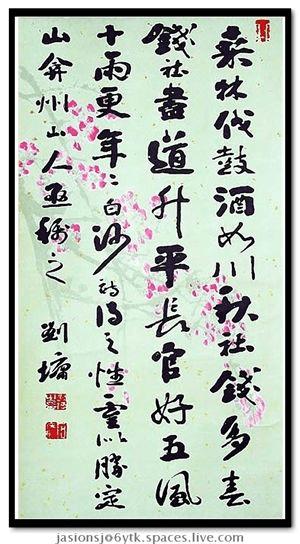 桑林伐鼓酒如川秋社錢多春
錢社盡道升平長官好五風
十雨更年〻白沙詩得之性靈以勝定
山弇州山人亟稱之 劉墉
jasionsjo6ytk.spaces.live.com